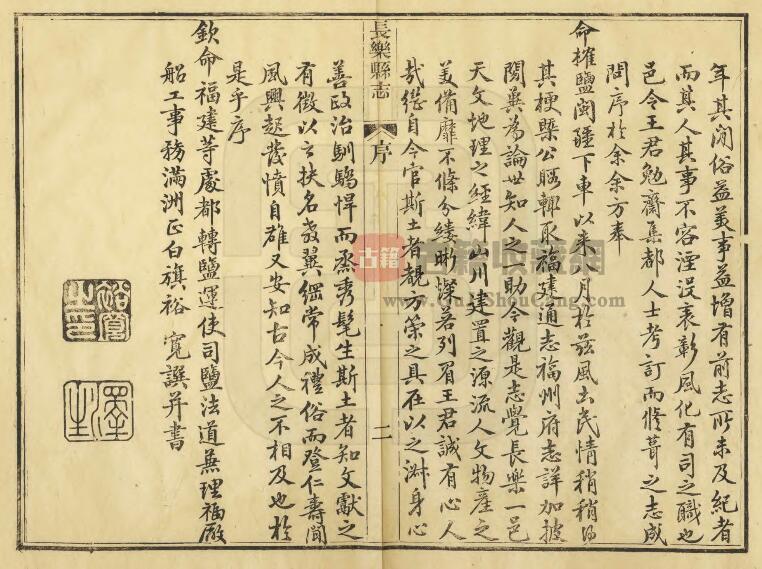 年其間俗益美事益增有前志所未及紀者
而其人其事不容湮沒表彰風化有司之職也
邑令王君勉齋集都人士考訂而修葺之志成
問序於余余方奉
命搉鹽閩疆下車以來八月於茲風土民情稍稍得
其梗槩公暇輒取福建通志福州府志詳加披
閱兼為論世知人之助今觀是志覺長樂一邑
天文地理之經緯山川建置之源流人文物產之
美備靡不條分縷晰燦若列眉王君誠有心人
哉從自今官斯土者覩方策之具在以之淑身心
長樂縣志
序
二
善政治馴驕悍而烝秀髦生斯土者知文獻之
有徵以之扶名教翼綱常成禮俗而登仁壽聞
風興起發憤自雄又安知古今人之不相及也於
是乎序
欽命福建等處都轉鹽運使司鹽法道兼理福廠
船工事務滿洲正白旗裕 寬譔并書
裕寬之印
澤生
古籍
古籍收藏網
www.GuJiShouCang.com